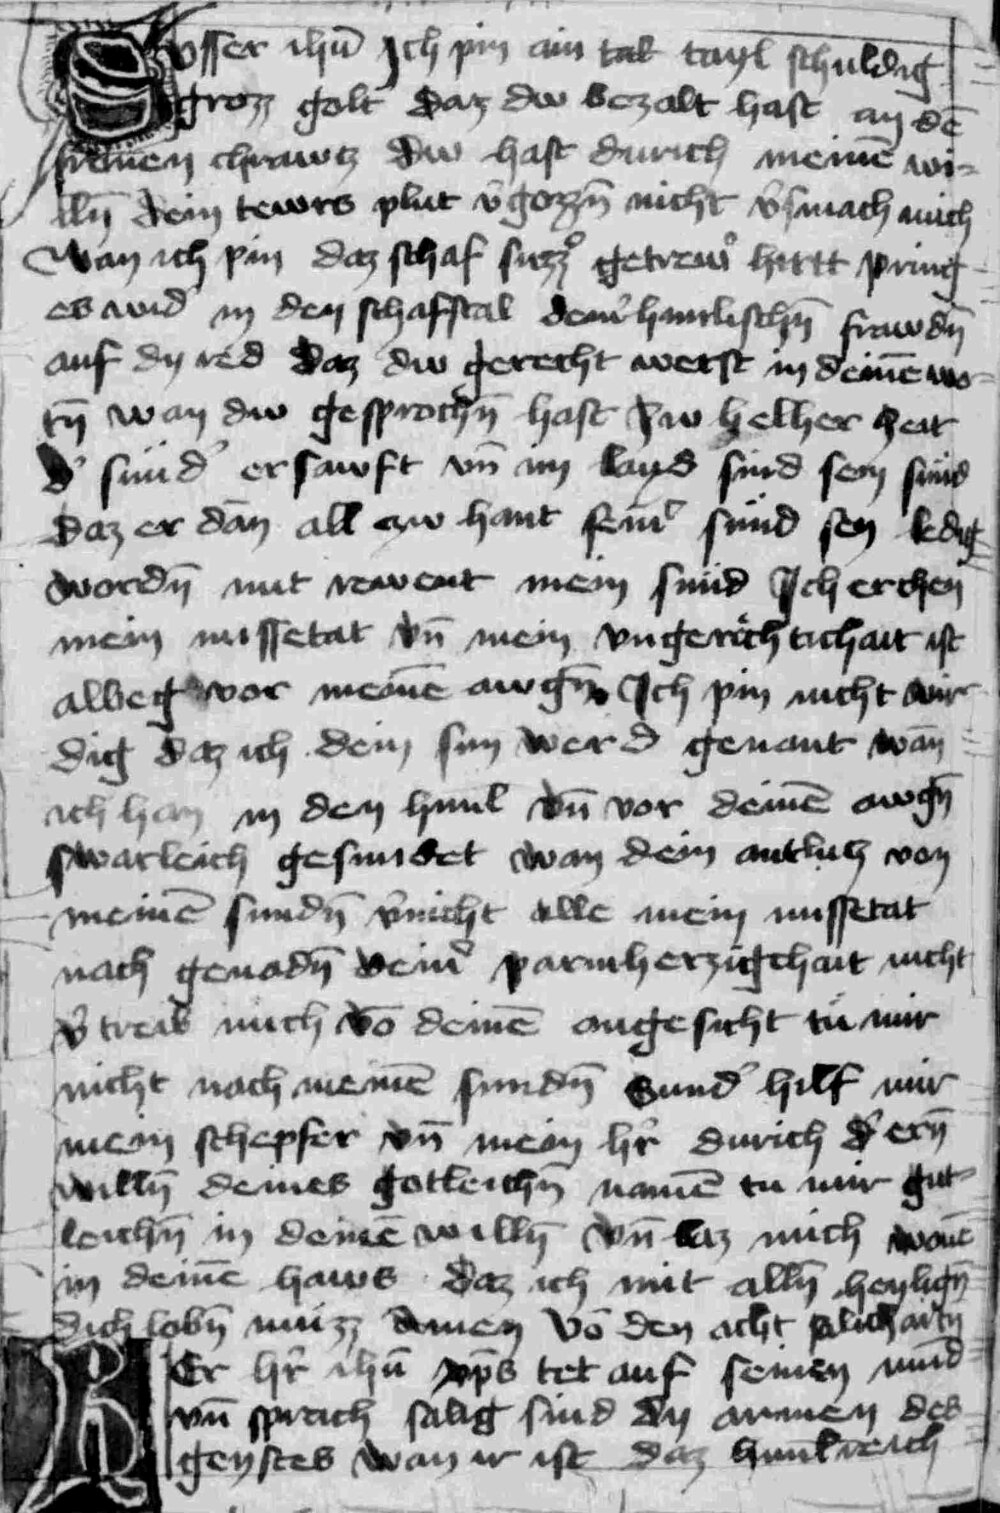 Susser ihū Ich pin ain tail tayl schuldig
grozz golt daz dw bezalt hast an dē
frewen chrawtz dw hast durich meinē wi-
llῡ dein tewrs plut v̓gozzn̄ nicht v̓smach mich
Wan ich pin daz schaf suzz̓ getrew̓ hirtt pring
es wid̓ in den schafstal dein̓ himlischn̄ frawdn̄
auf dy red daz dw gerecht werst in deinē wor-
tn̄ wan dw gesprochn̄ hast zw welher zeit
d̓ sund̓ ersawft vn̄ im layd sind sein sünd
daz er dan̄ all czw hant sein̓ sünd sey ledig
wordn̄ mit reweut mein sünd Ich erchen
mein missetat vn̄ mein vngerechtichait ist
albeg vor meinē awgn̄ Ich pin nicht wir-
dig daz ich dein sun werd genant wan̄
ich han in den himl vn̄ vor deinē awgn̄
swarleich gesundet wan dein antlutz von
meinē sundn̄ v̓nicht alle mein missetat
nach genadn̄ dein̓ parmherzigchait nicht
v̓treib mich vō deinē angesicht tu mir
nicht nach meinē sundn̄ Sund̓ hilf mir
mein schepfer vn̄ mein hr̓ durich d̓ ern̄
willn̄ deines gotleichn̄ namē tu mir gut-
leichn̄ in deinē willn̄ vn̄ laz mich wonē
in deinē haws daz ich mit alln̄ heylign̄
dich lobn̄ müzz amen Vō den acht salichaitn̄
Er hr̓ ihū xp̄s tet auf seinen mund
vn̄ sprach salig sind dy armen des
geystes wan ir ist daz himlreich